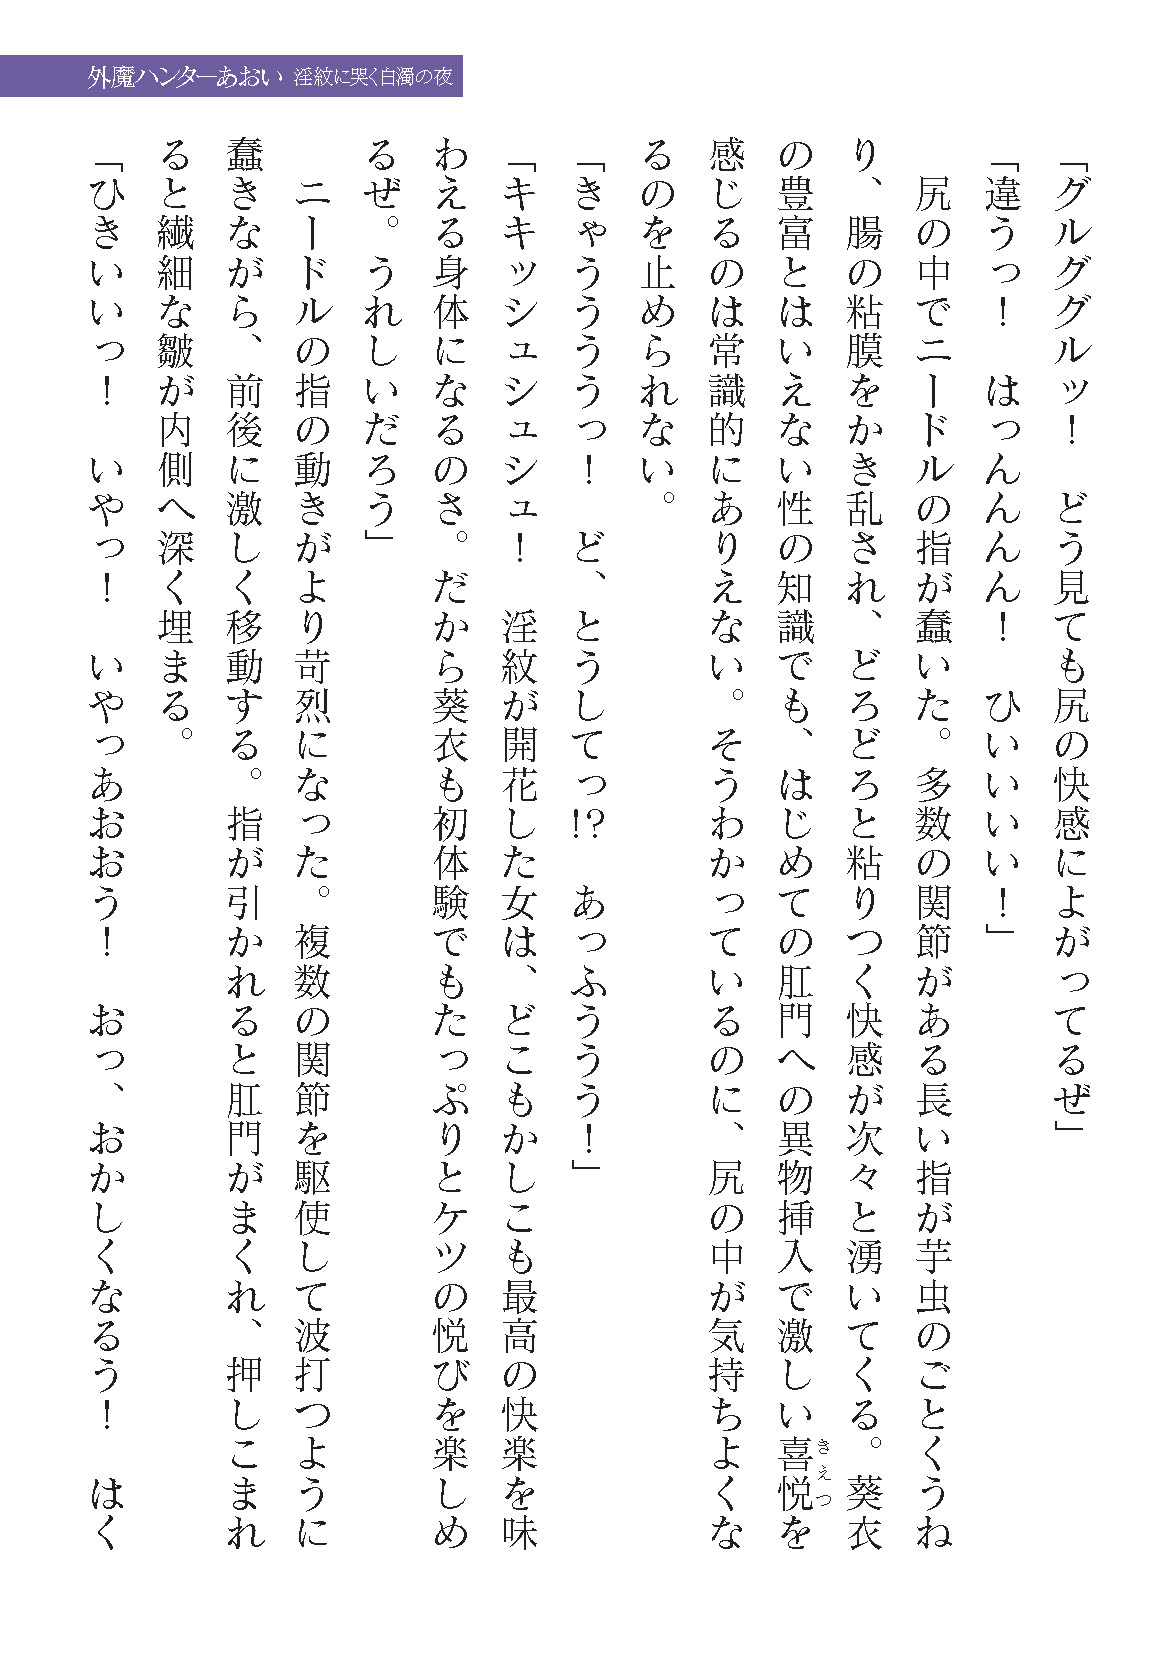 外魔ハンターあおい 淫紋に哭く白濁の夜
「グルググルッ！　どう見ても尻の快感によがってるぜ」
「違うっ！　はっんんんん！　ひいいいい！」
　尻の中でニードルの指が蠢いた。多数の関節がある長い指が芋虫のごとくうね
り、腸の粘膜をかき乱され、どろどろと粘りつく快感が次々と湧いてくる。葵衣
の豊富とはいえない性の知識でも、はじめての肛門への異物挿入で激しい喜悦（きえつ）を
感じるのは常識的にありえない。そうわかっているのに、尻の中が気持ちよくな
るのを止められない。
「きゃうううっ！　ど、とうしてっ!?　あっふううう！」
「キキッシュシュシュ！　淫紋が開花した女は、どこもかしこも最高の快楽を味
わえる身体になるのさ。だから葵衣も初体験でもたっぷりとケツの悦びを楽しめ
るぜ。うれしいだろう」
　ニードルの指の動きがより苛烈になった。複数の関節を駆使して波打つように
蠢きながら、前後に激しく移動する。指が引かれると肛門がまくれ、押しこまれ
ると繊細な皺が内側へ深く埋まる。
「ひきいいっ！　いやっ！　いやっあおおう！　おっ、おかしくなるう！　はく